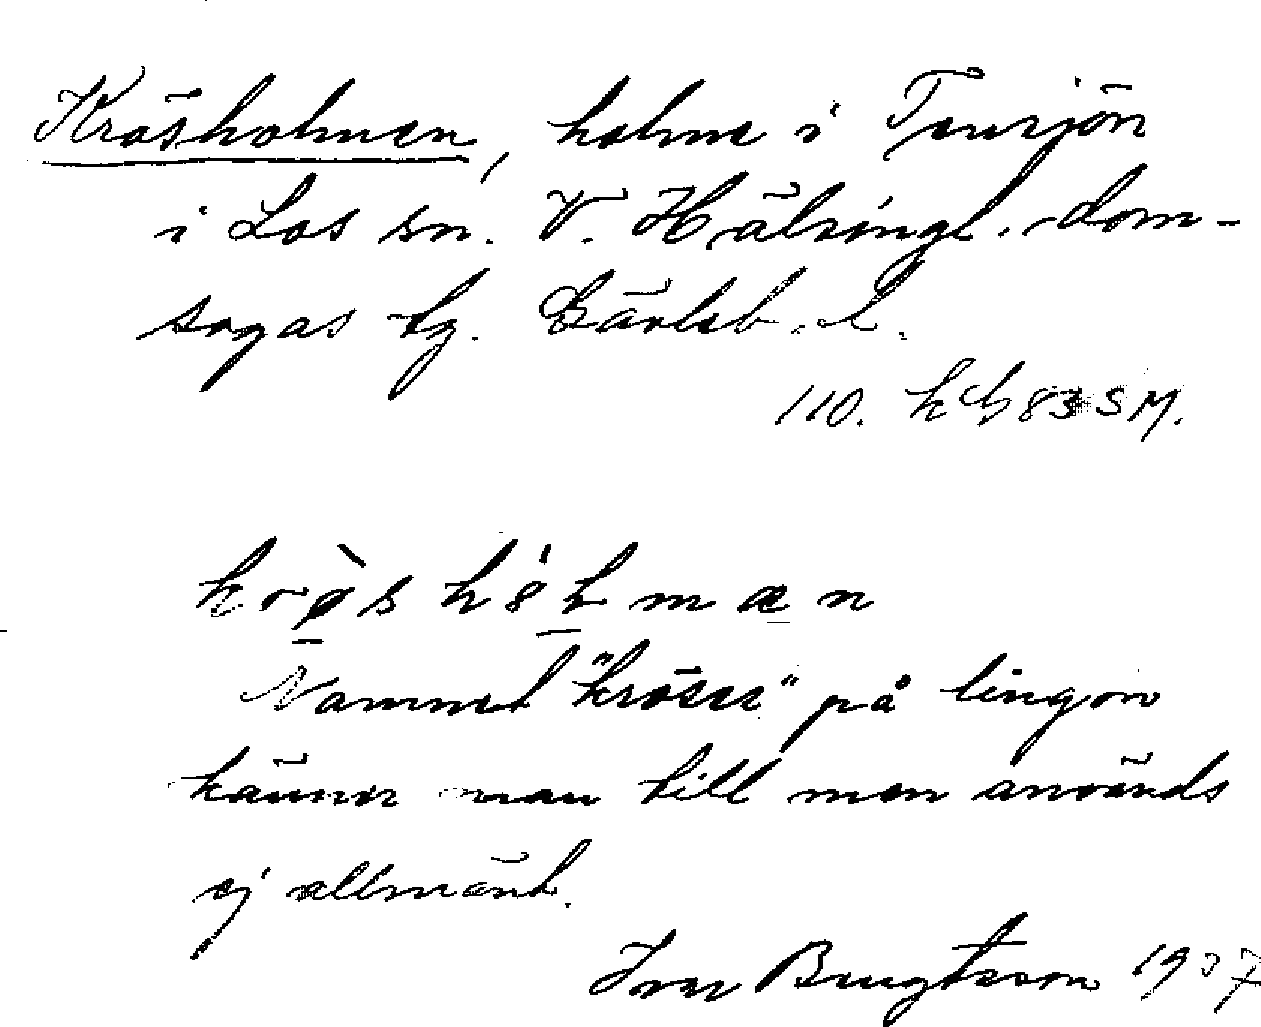 Krösholmen, holme i Tensjön
i Los sn. V. Hälsingl. dom-
sagas tg. Gävleb. l.
110. kh 83 SM.
Namnet "kröser" på lingon
känner man till men används
ej allmänt.
Ivar Bengtsson 1937